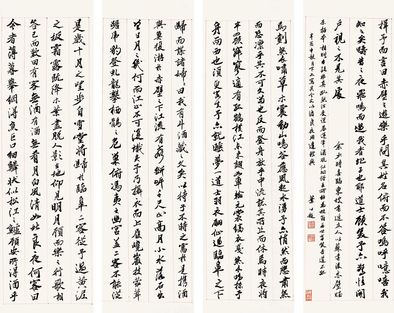 是歲十月之望步自雪堂將歸於臨皋二客從予過黃泥
之坂霜露既降木葉盡脫人影在地仰見明月顧而樂之行歌相
答已而歎曰有客無酒有酒無肴月白風清如此良夜何客曰
今者薄暮舉網得魚巨口細鱗狀似松江之鱸顧安所得酒乎
歸而謀諸婦婦曰我有斗酒藏之久矣以待子不時之需於是攜酒
與魚復遊於赤壁之下江流有聲斷岸千尺山高月小水落石出
曾日月之幾何而江山不可復識矣予乃攝衣而上履巉巖披蒙茸
踞虎豹登虬龍攀栖鶻之危巢俯馮夷之幽宮蓋二客不能從
焉劃然長嘯草木震動山鳴谷應風起水涌予亦悄然而悲肅然
而恐凜乎其不可久留也反而登舟放乎中流聽其所止而休焉時夜將
半四顧寂寥適有孤鶴橫江東來翅如車輪玄裳縞衣戛然長鳴掠予
舟而西也須臾客去予亦就睡夢一道士羽衣翩躚過臨皋之下
揖予而言曰赤壁之遊樂乎問其姓名俛而不答嗚呼噫嘻我
知之矣疇昔之夜飛鳴而過我者非子也耶道士顧笑予亦驚悟開
戶視之不見其處